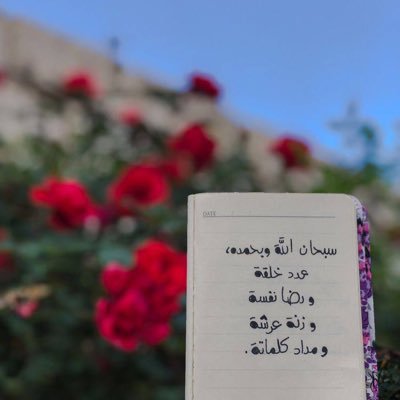 DATE
سبحان اللّٰه وبحمده،
عدد خلقة
ورضا نفسة
وزنة عرشة
ومداد كلماتة.